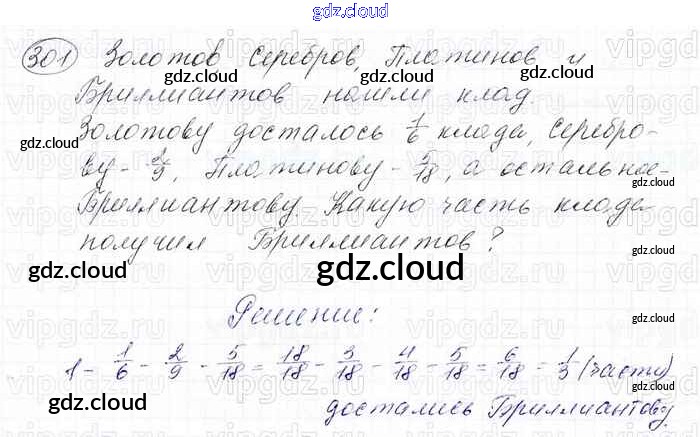 gdz.cloud
301 Золотов, Серебров, Платинов и
Бриллиантов нашли клад.
Золотову досталось 1/6 клада, Серебро-
ву - 2/9, Платинову - 5/18, а остальное -
Бриллиантову. Какую часть клада
получил Бриллиантов?
Решение:
1 - 1/6 - 2/9 - 5/18 = 18/18 - 3/18 - 4/18 - 5/18 = 6/18 = 1/3 (часть)
достались Бриллиантову
gdz.cloud
gdz.cloud
gdz.cloud
gdz.cloud
gdz.cloud
gdz.cloud
gdz.cloud
gdz.cloud
gdz.cloud
gdz.cloud
gdz.cloud
gdz.cloud
gdz.cloud